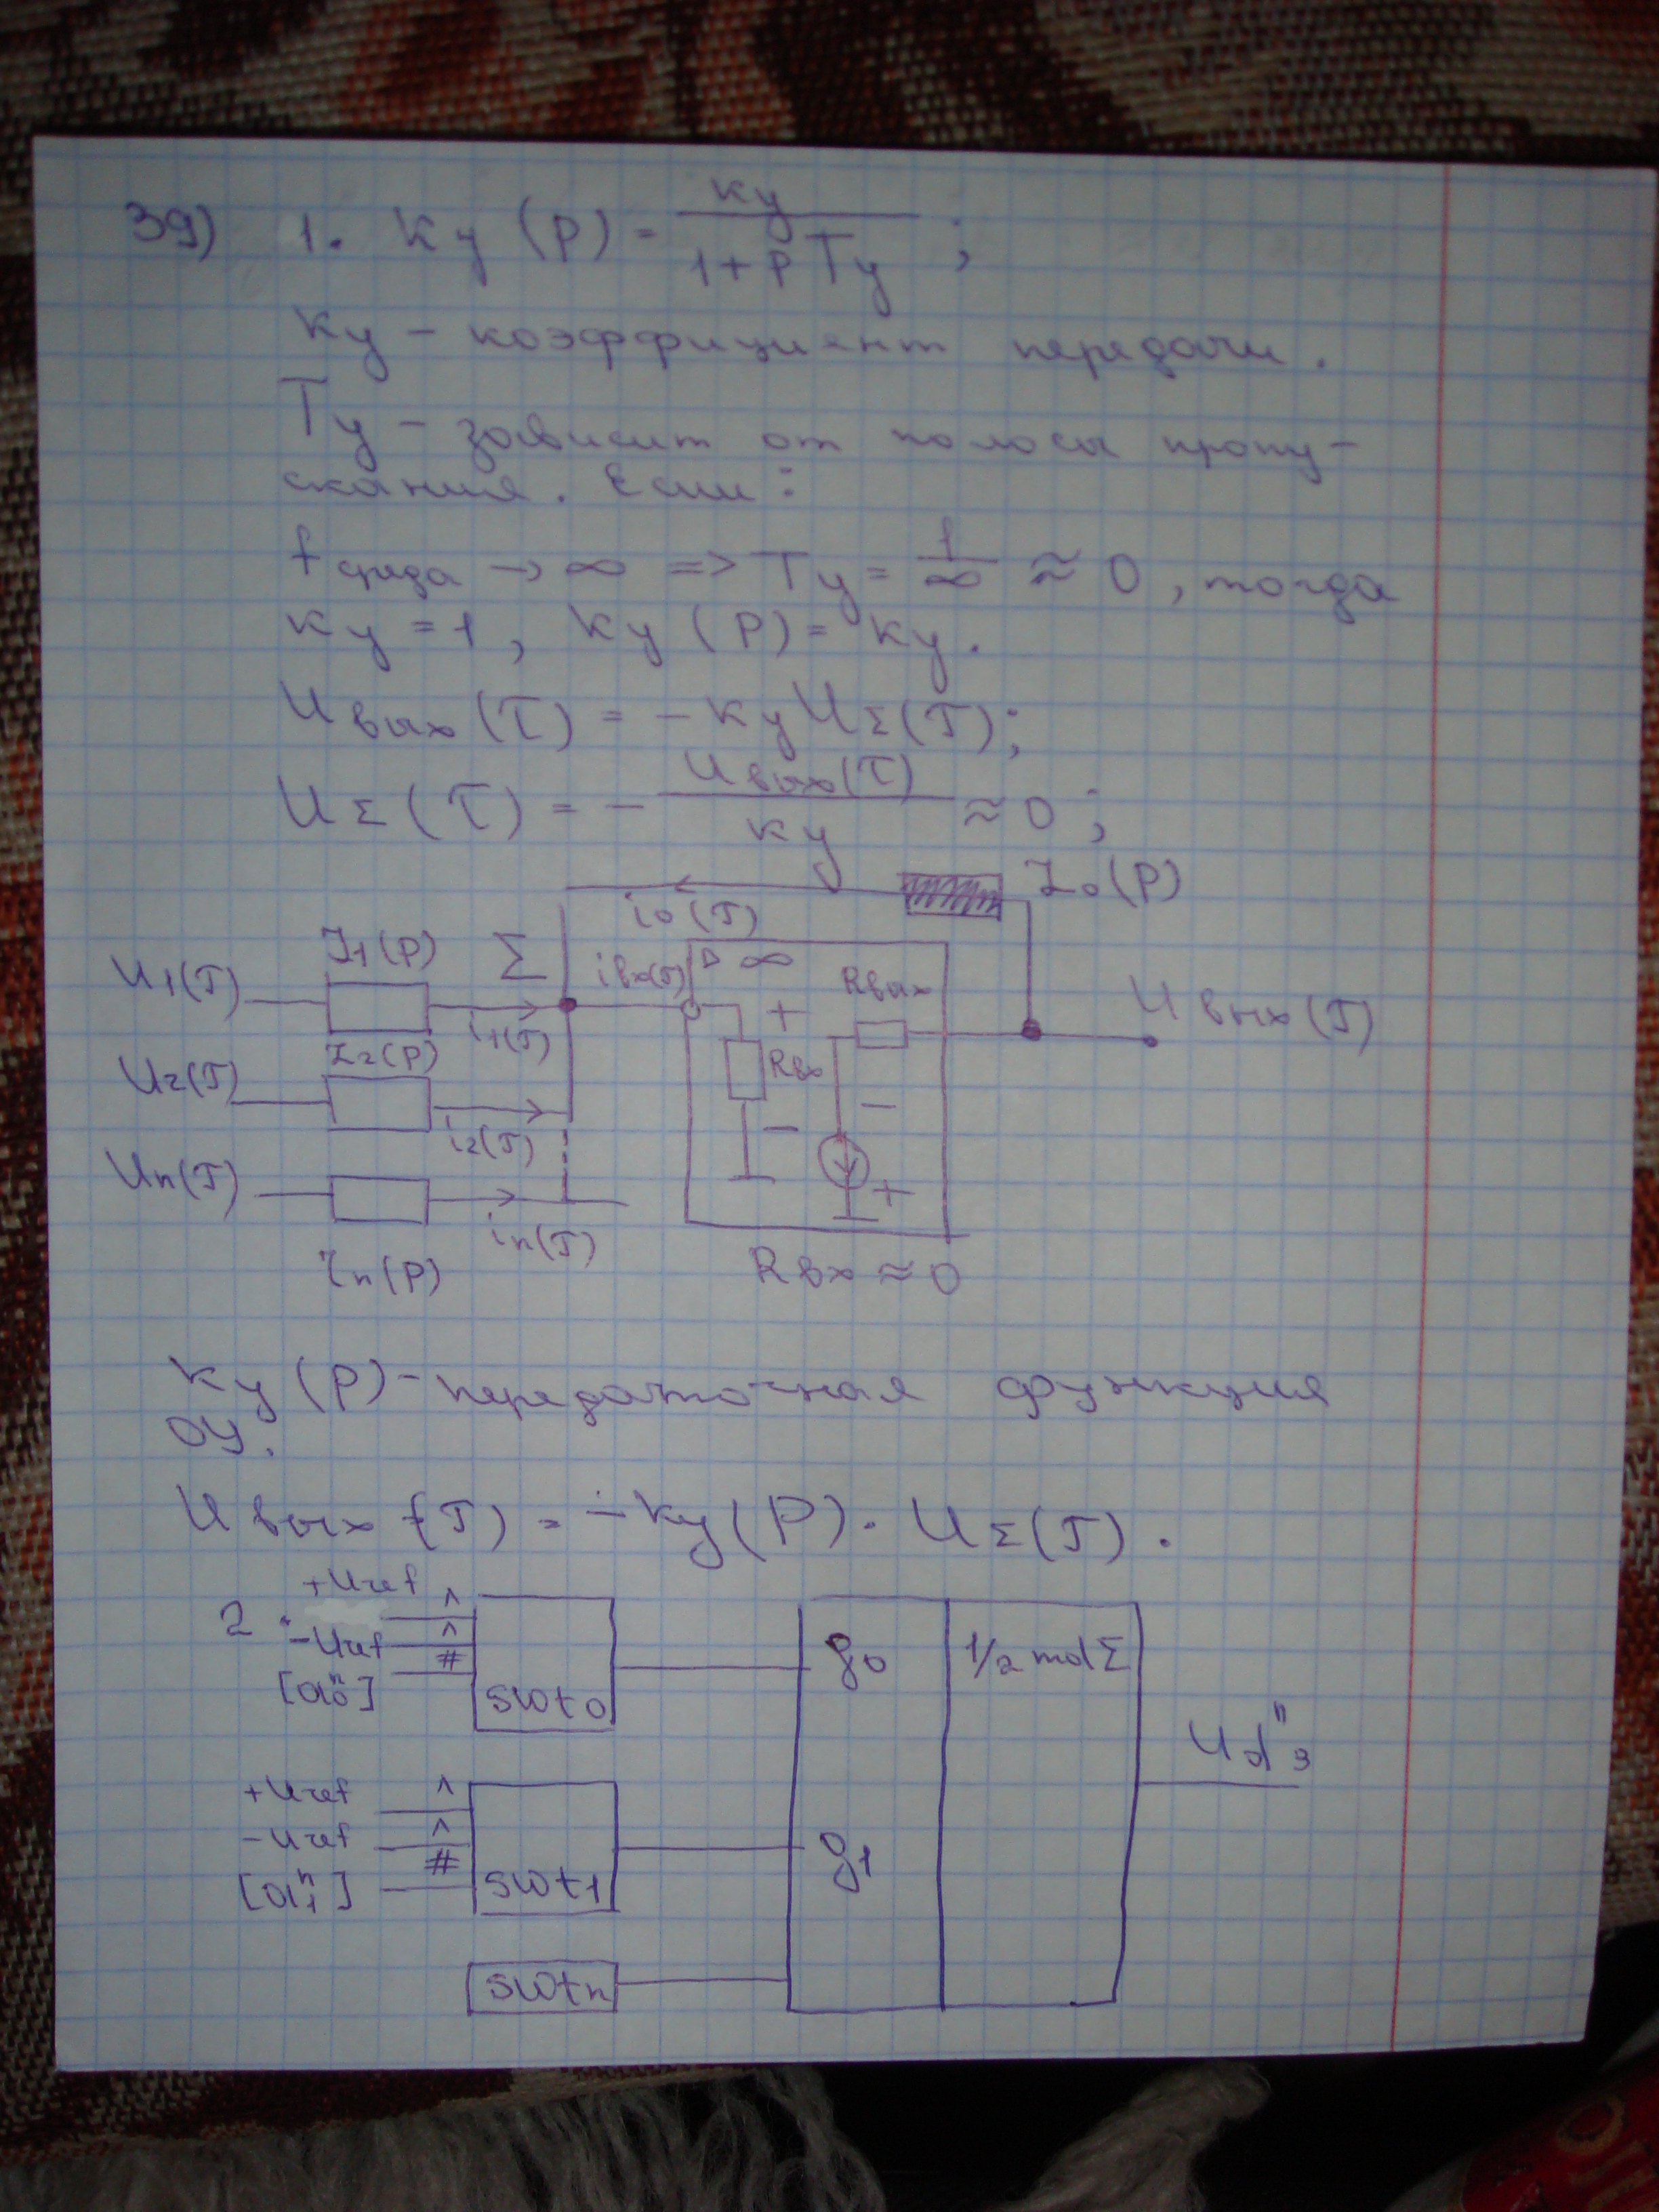 39) 1. Kу (P) = kу / (1 + P Tу) ;
Kу – коэффициент передачи.
Tу – зависит от полосы пропу-
скания. Если:
fсреза → ∞ => Tу = 1/∞ ≈ 0, тогда
Kу = 1, Kу (P) = Kу.
Uвых (T) = – Kу UΣ(T);
UΣ (T) = – Uвых(T) / Kу ≈ 0;
Z0(P)
i0(T)
Z1(P) Σ iвх(T) ▷ ∞ Rвых
U1(T) i1(T) + Uвых(T)
Z2(P) Rвх
U2(T) i2(T) – –
Un(T) in(T) +
Zn(P) Rвх ≈ 0
Kу (P) – передаточная функция
ОУ.
Uвых (T) = – Kу (P) · UΣ(T).
2. +Uref ^
–Uref ^ g0 1/2 mdΣ
[α0ⁿ] # swt0
+Uref ^
–Uref ^ g1
[α1ⁿ] # swt1
swtn